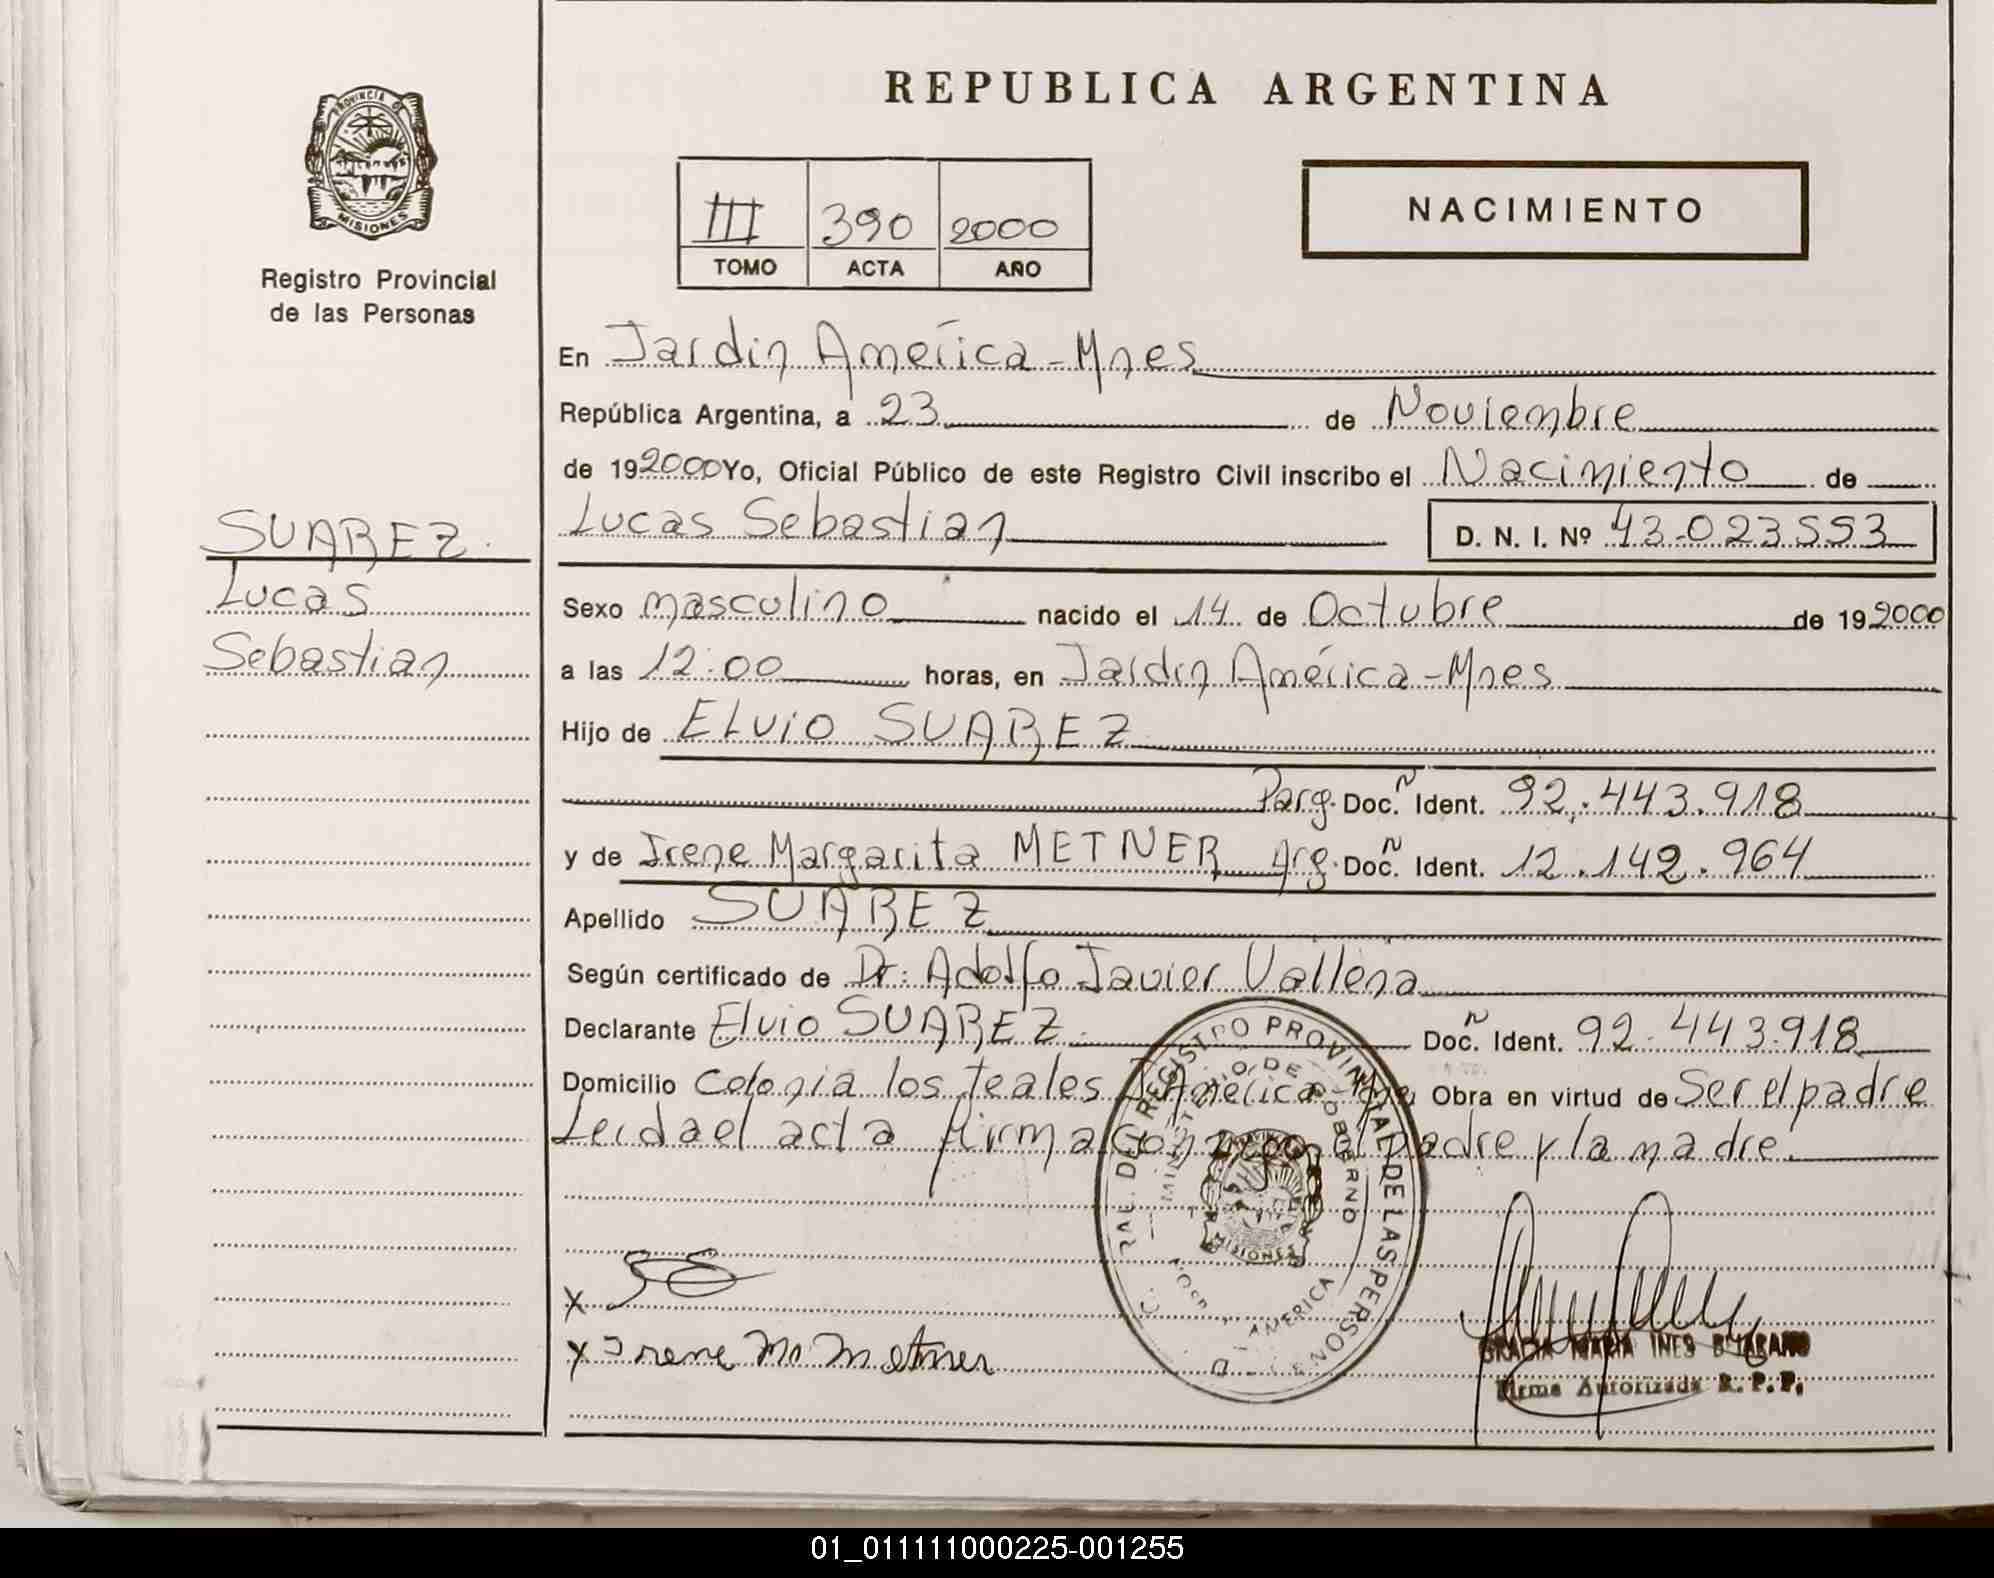 REPUBLICA ARGENTINA
PROVINCIA D
MISIONES
Registro Provincial
de las Personas
III 390 2000
TOMO ACTA AÑO
NACIMIENTO
En Jardin América - Mnes
República Argentina, a 23 de Noviembre
de 192000 Yo, Oficial Público de este Registro Civil inscribo el Nacimiento de
SUAREZ.
Lucas
Sebastian
Lucas Sebastian D. N. I. Nº 43.023553
Sexo masculino nacido el 14 de Octubre de 192000
a las 12:00 horas, en Jardin América - Mnes
Hijo de ELVIO SUAREZ
Parg. Doc. Nº Ident. 92.443.918
y de Irene Margarita METNER Arg. Doc. Nº Ident. 12.142.964
Apellido SUAREZ
Según certificado de Dr: Adolfo Javier Vallena
Declarante Elvio SUAREZ. Doc. Nº Ident. 92.443.918
Domicilio Colonia los teales J. América Obra en virtud de Ser el padre
Leida el acta firma Conmigo el padre y la madre.
REGISTRO PROVINCIAL DE LAS PERSONAS
MINISTERIO DE GOBIERNO
MISIONES
AMERICA
X
X Irene M Metner
GRACIA MARIA INES BEJARANO
Firma Autorizada R. P. P.
01_011111000225-001255